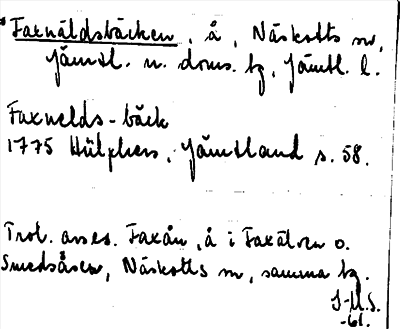 Faxnäldsbäcken, å, Näskotts sn,
Jämtl. n. doms. tg, Jämtl. l.
Faxnelds-bäck
1775 Hülphers, Jämtland s. 58.
Trol. avses. Faxån, å i Faxälven o.
Smedsåsen, Näskotts sn, samma tg.
-61.